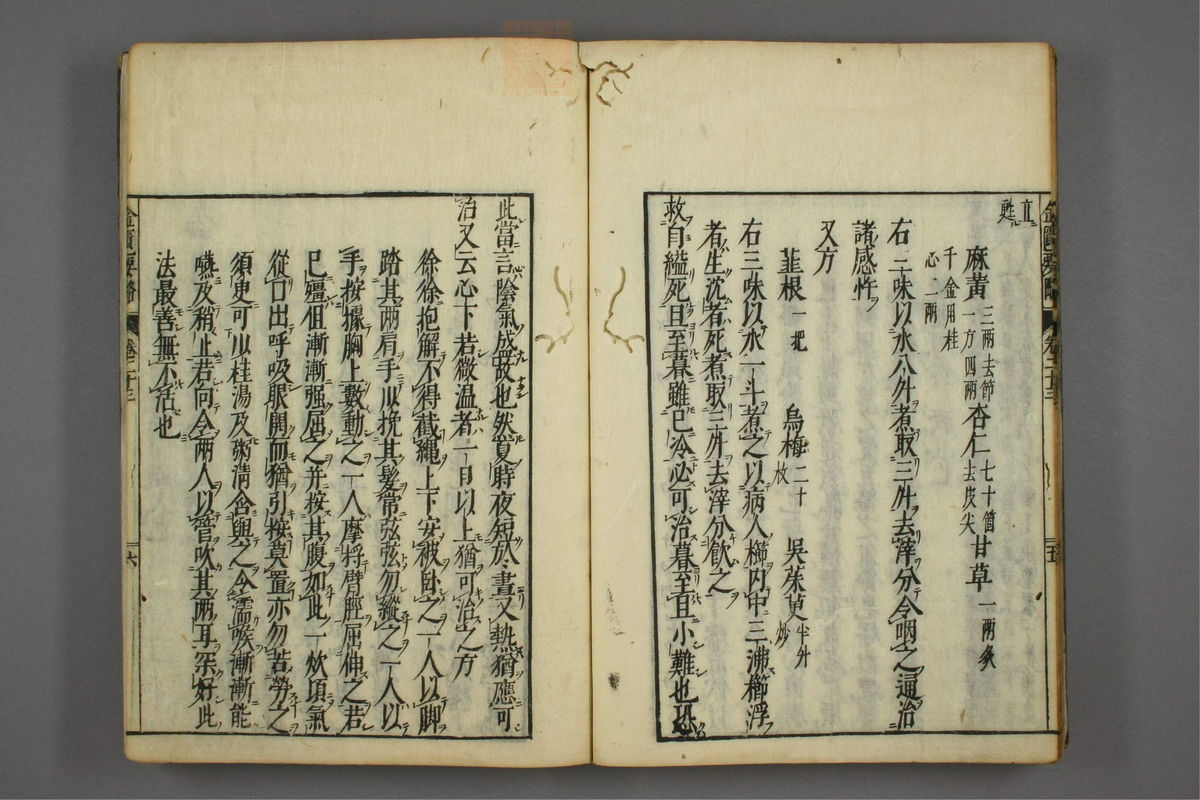 立
甦
麻黄三兩去節一方四兩杏仁七十箇去皮尖甘草一兩炙
千金用桂
心二兩
右三味以水八升煮取三升去滓分令咽之通治
諸感忤
又方
韮根一把 烏梅二十枚 吳茱萸半升炒
右三味以水一斗煮之以病人櫛内中三沸櫛浮
者生沈者死煮取三升去滓分飲之
救自縊死旦至暮雖已冷必可治暮至旦小難也恐
此當言陰氣盛故也然夏時夜短於晝又熱猶應可
治又云心下若微温者一日以上猶可治之方
徐徐抱解不得截繩上下安被臥之一人以脚
踏其兩肩手以挽其髮常弦弦勿縱之一人以
手按據胸上數動之一人摩捋臂脛屈伸之若
已殭但漸漸强屈之并按其腹如此一炊頃氣
從口出呼吸眼開而猶引按莫置亦勿苦勞之
須臾可少桂湯及粥清含與之令濡喉漸漸能
嚥及稍止若向令兩人以管吹其兩耳冞好此
法最善無不活也
金匱要略
卷二十三
六